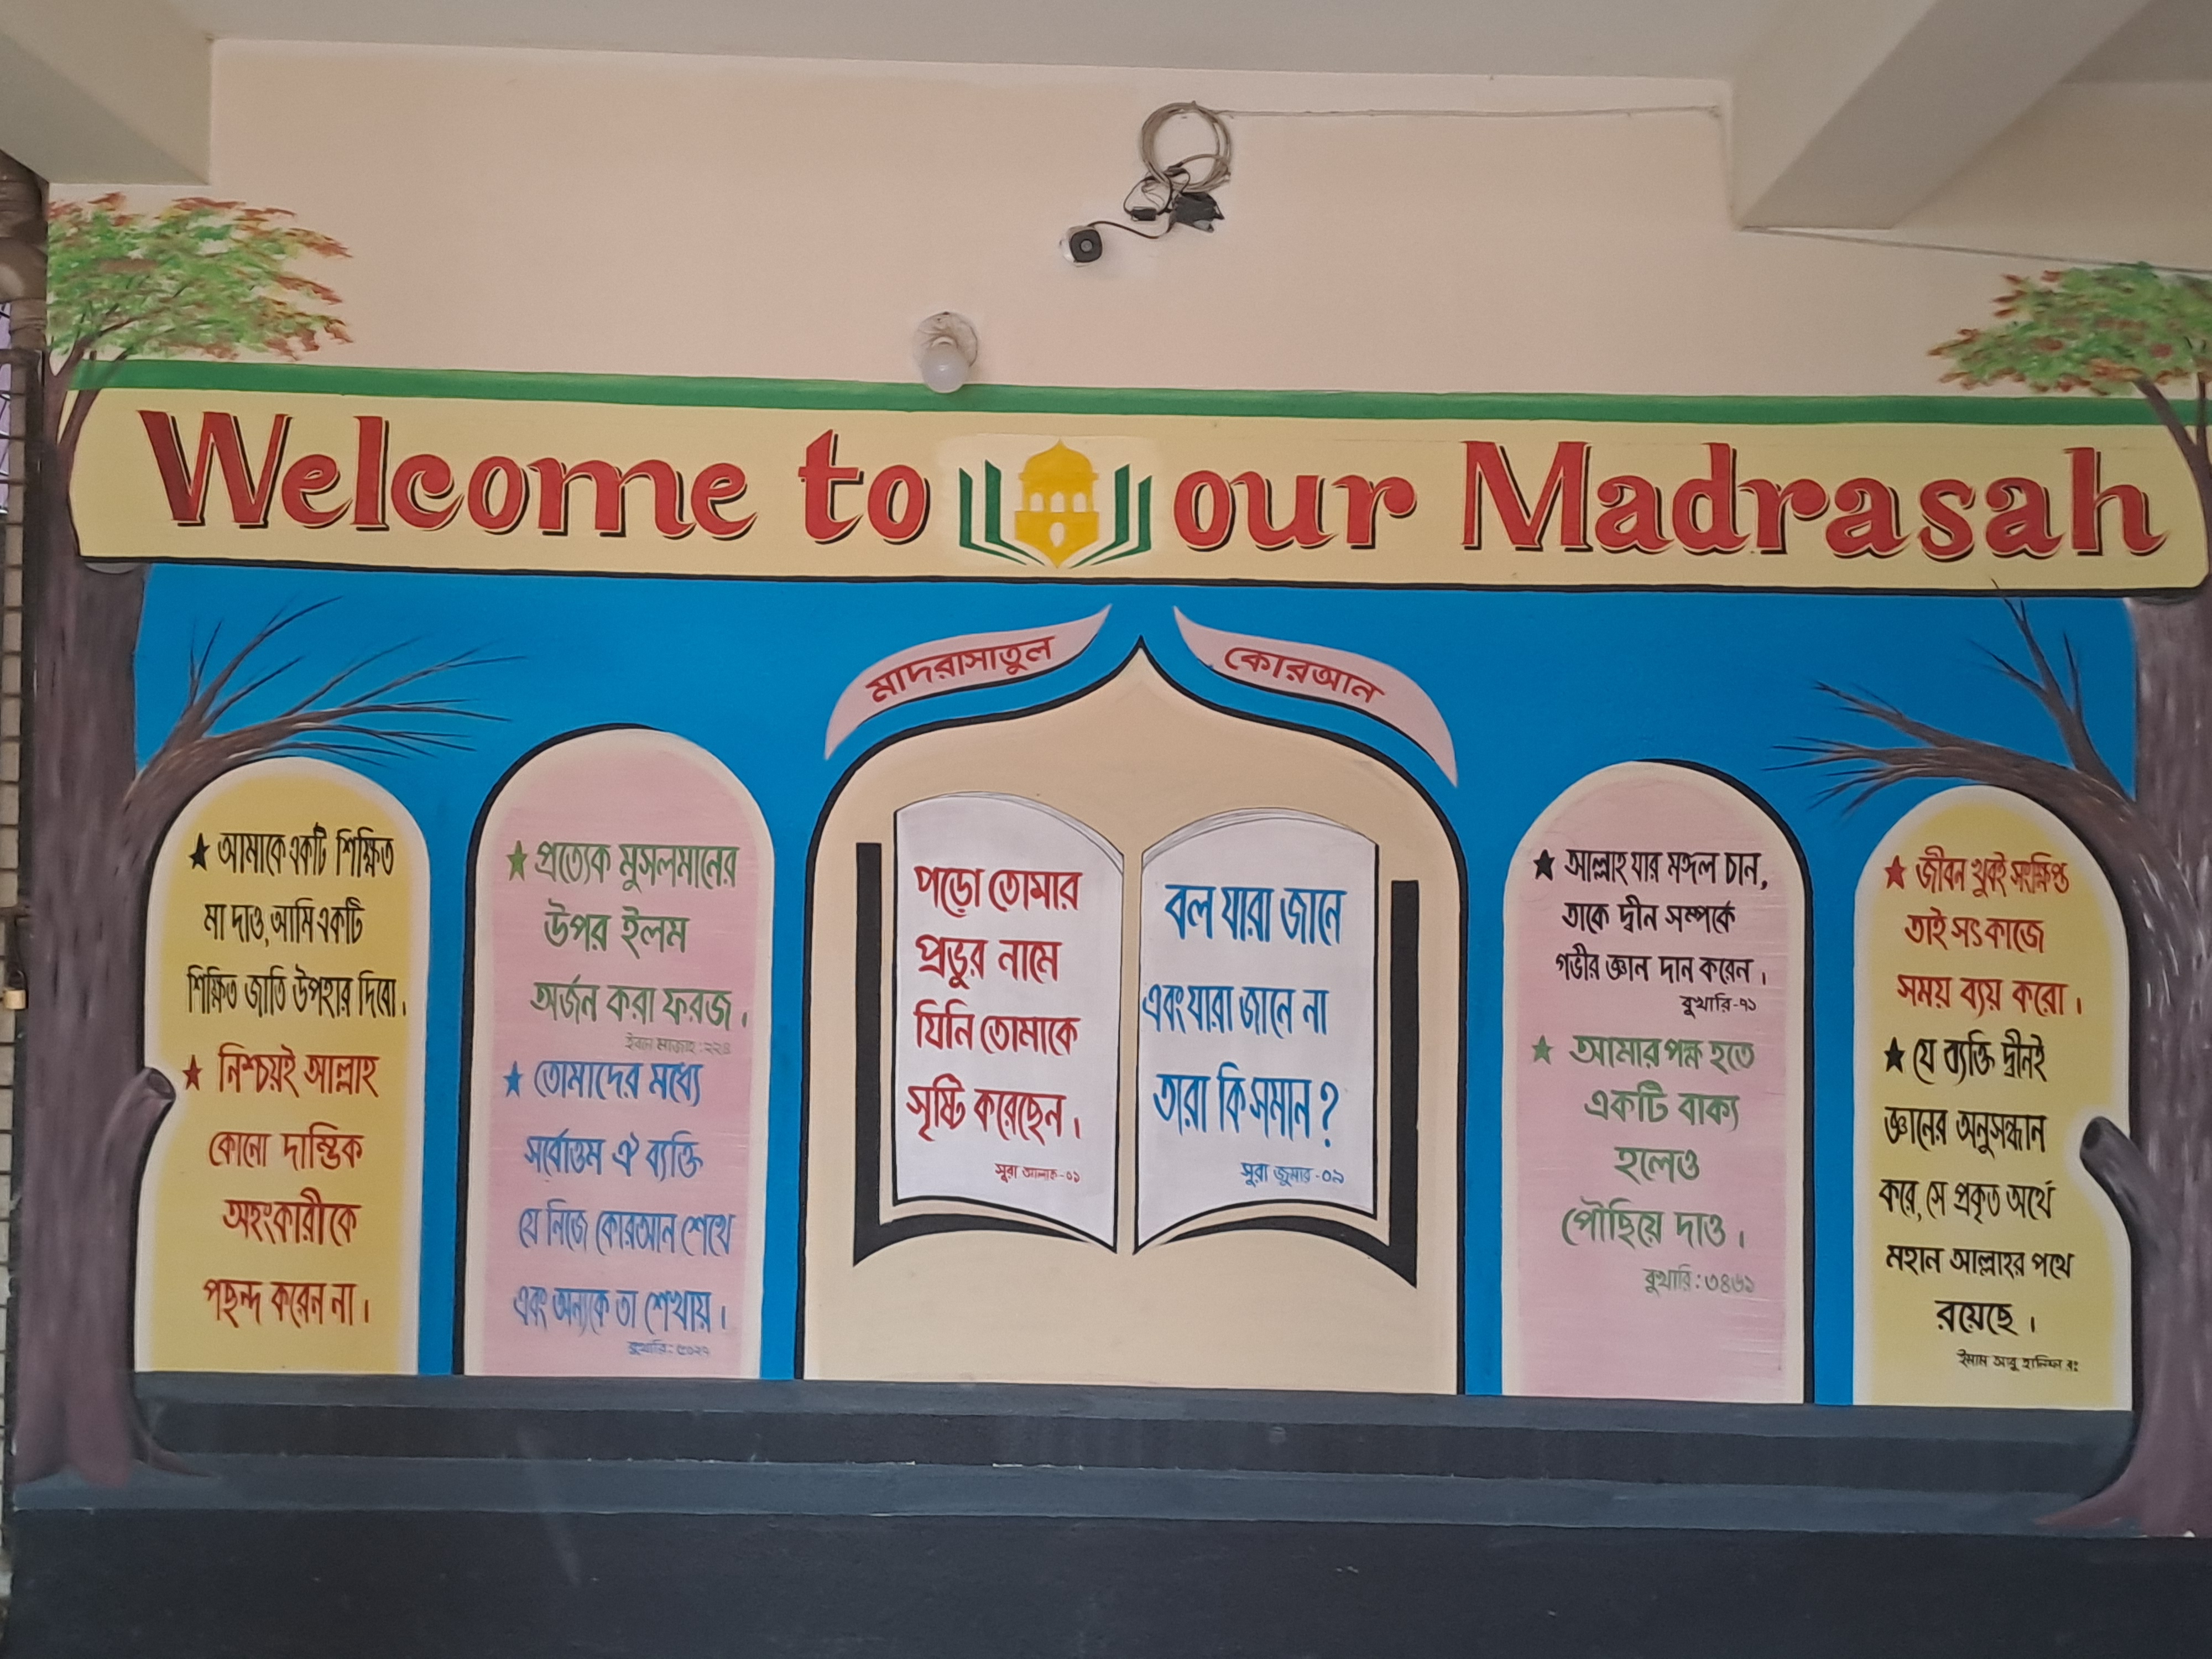 Welcome to our Madrasah
মাদরাসাতুল কোরআন
★ আমাকে একটি শিক্ষিত
মা দাও, আমি একটি
শিক্ষিত জাতি উপহার দিবো।
★ নিশ্চয়ই আল্লাহ
কোনো দাম্ভিক
অহংকারীকে
পছন্দ করেন না।
★ প্রত্যেক মুসলমানের
উপর ইলম
অর্জন করা ফরজ।
ইবনে মাজাহ : ২২৪
★ তোমাদের মধ্যে
সর্বোত্তম ঐ ব্যক্তি
যে নিজে কোরআন শেখে
এবং অন্যকে তা শেখায়।
বুখারি : ৫০২৭
পড়ো তোমার
প্রভুর নামে
যিনি তোমাকে
সৃষ্টি করেছেন।
সূরা আলাক-০১
বল যারা জানে
এবং যারা জানে না
তারা কি সমান ?
সুরা জুমার -০৯
★ আল্লাহ যার মঙ্গল চান,
তাকে দ্বীন সম্পর্কে
গভীর জ্ঞান দান করেন।
বুখারি-৭১
★ আমার পক্ষ হতে
একটি বাক্য
হলেও
পৌছিয়ে দাও।
বুখারি : ৩৪৬১
★ জীবন খুবই সংক্ষিপ্ত
তাই সৎ কাজে
সময় ব্যয় করো।
★ যে ব্যক্তি দ্বীনই
জ্ঞানের অনুসন্ধান
করে, সে প্রকৃত অর্থে
মহান আল্লাহর পথে
রয়েছে।
ইমাম আবু হানিফা রঃ